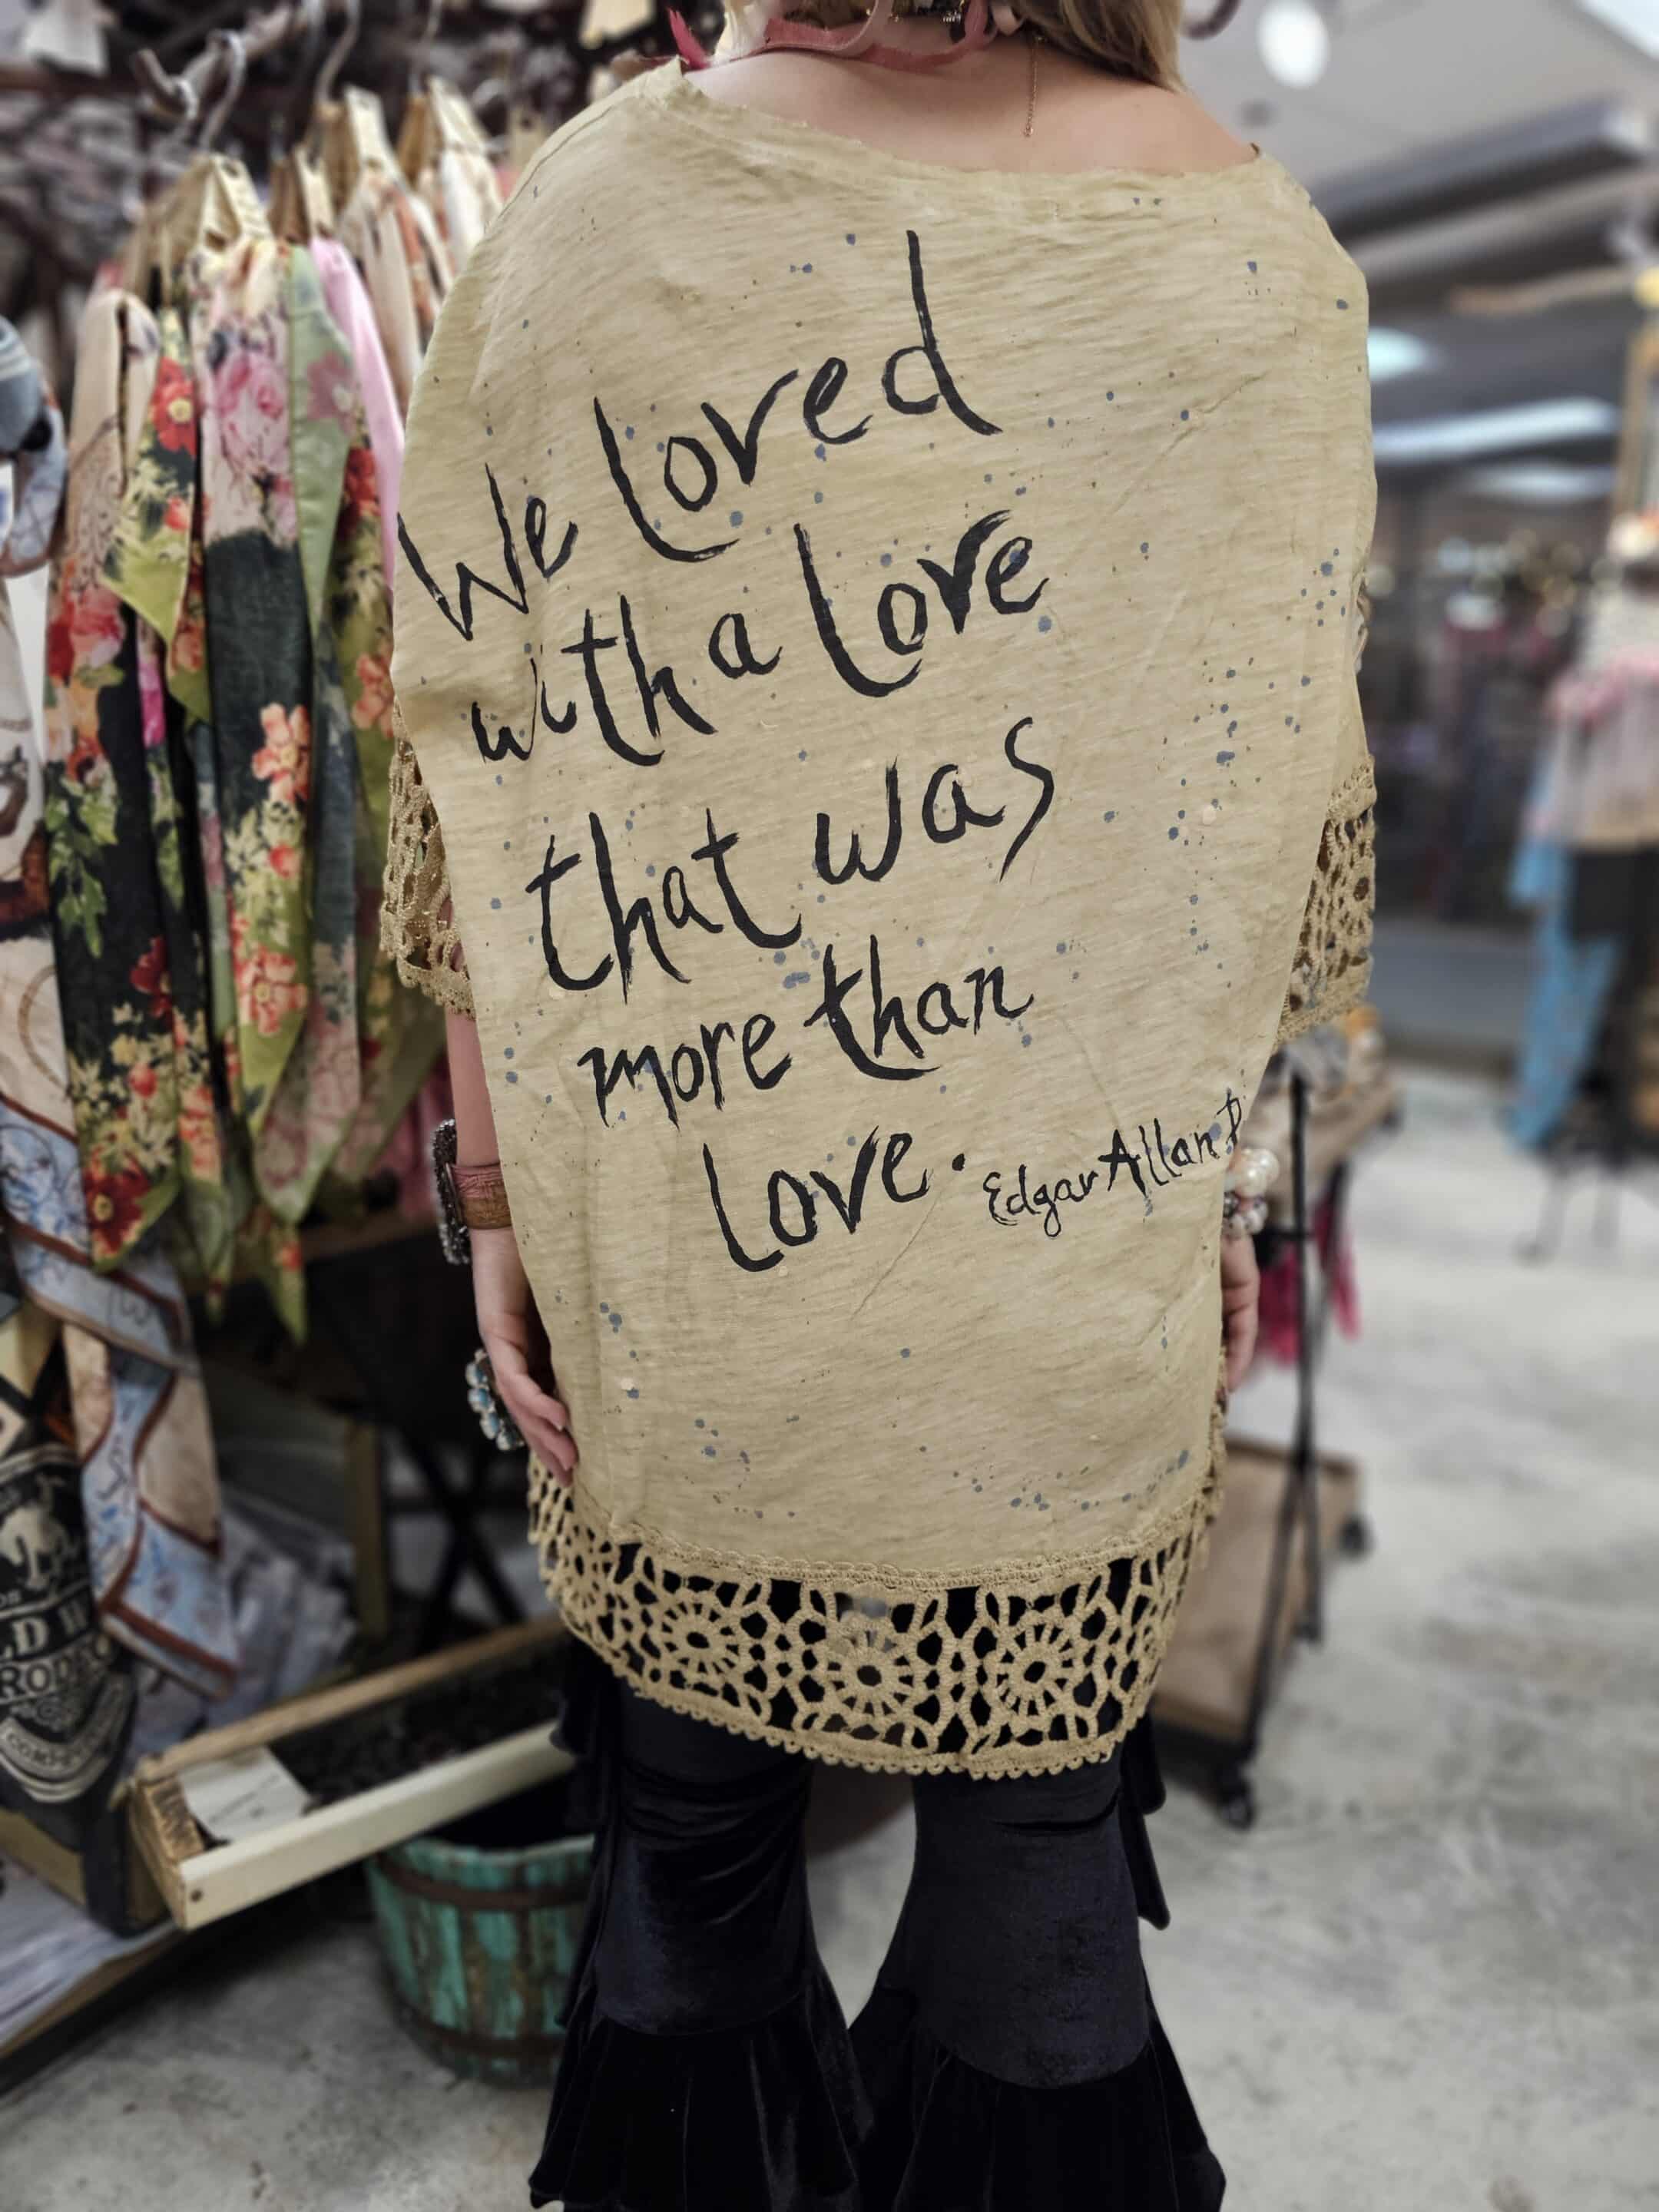 We Loved
with a Love
that was
more than
Love.
Edgar Allan P
LD W
RODEO